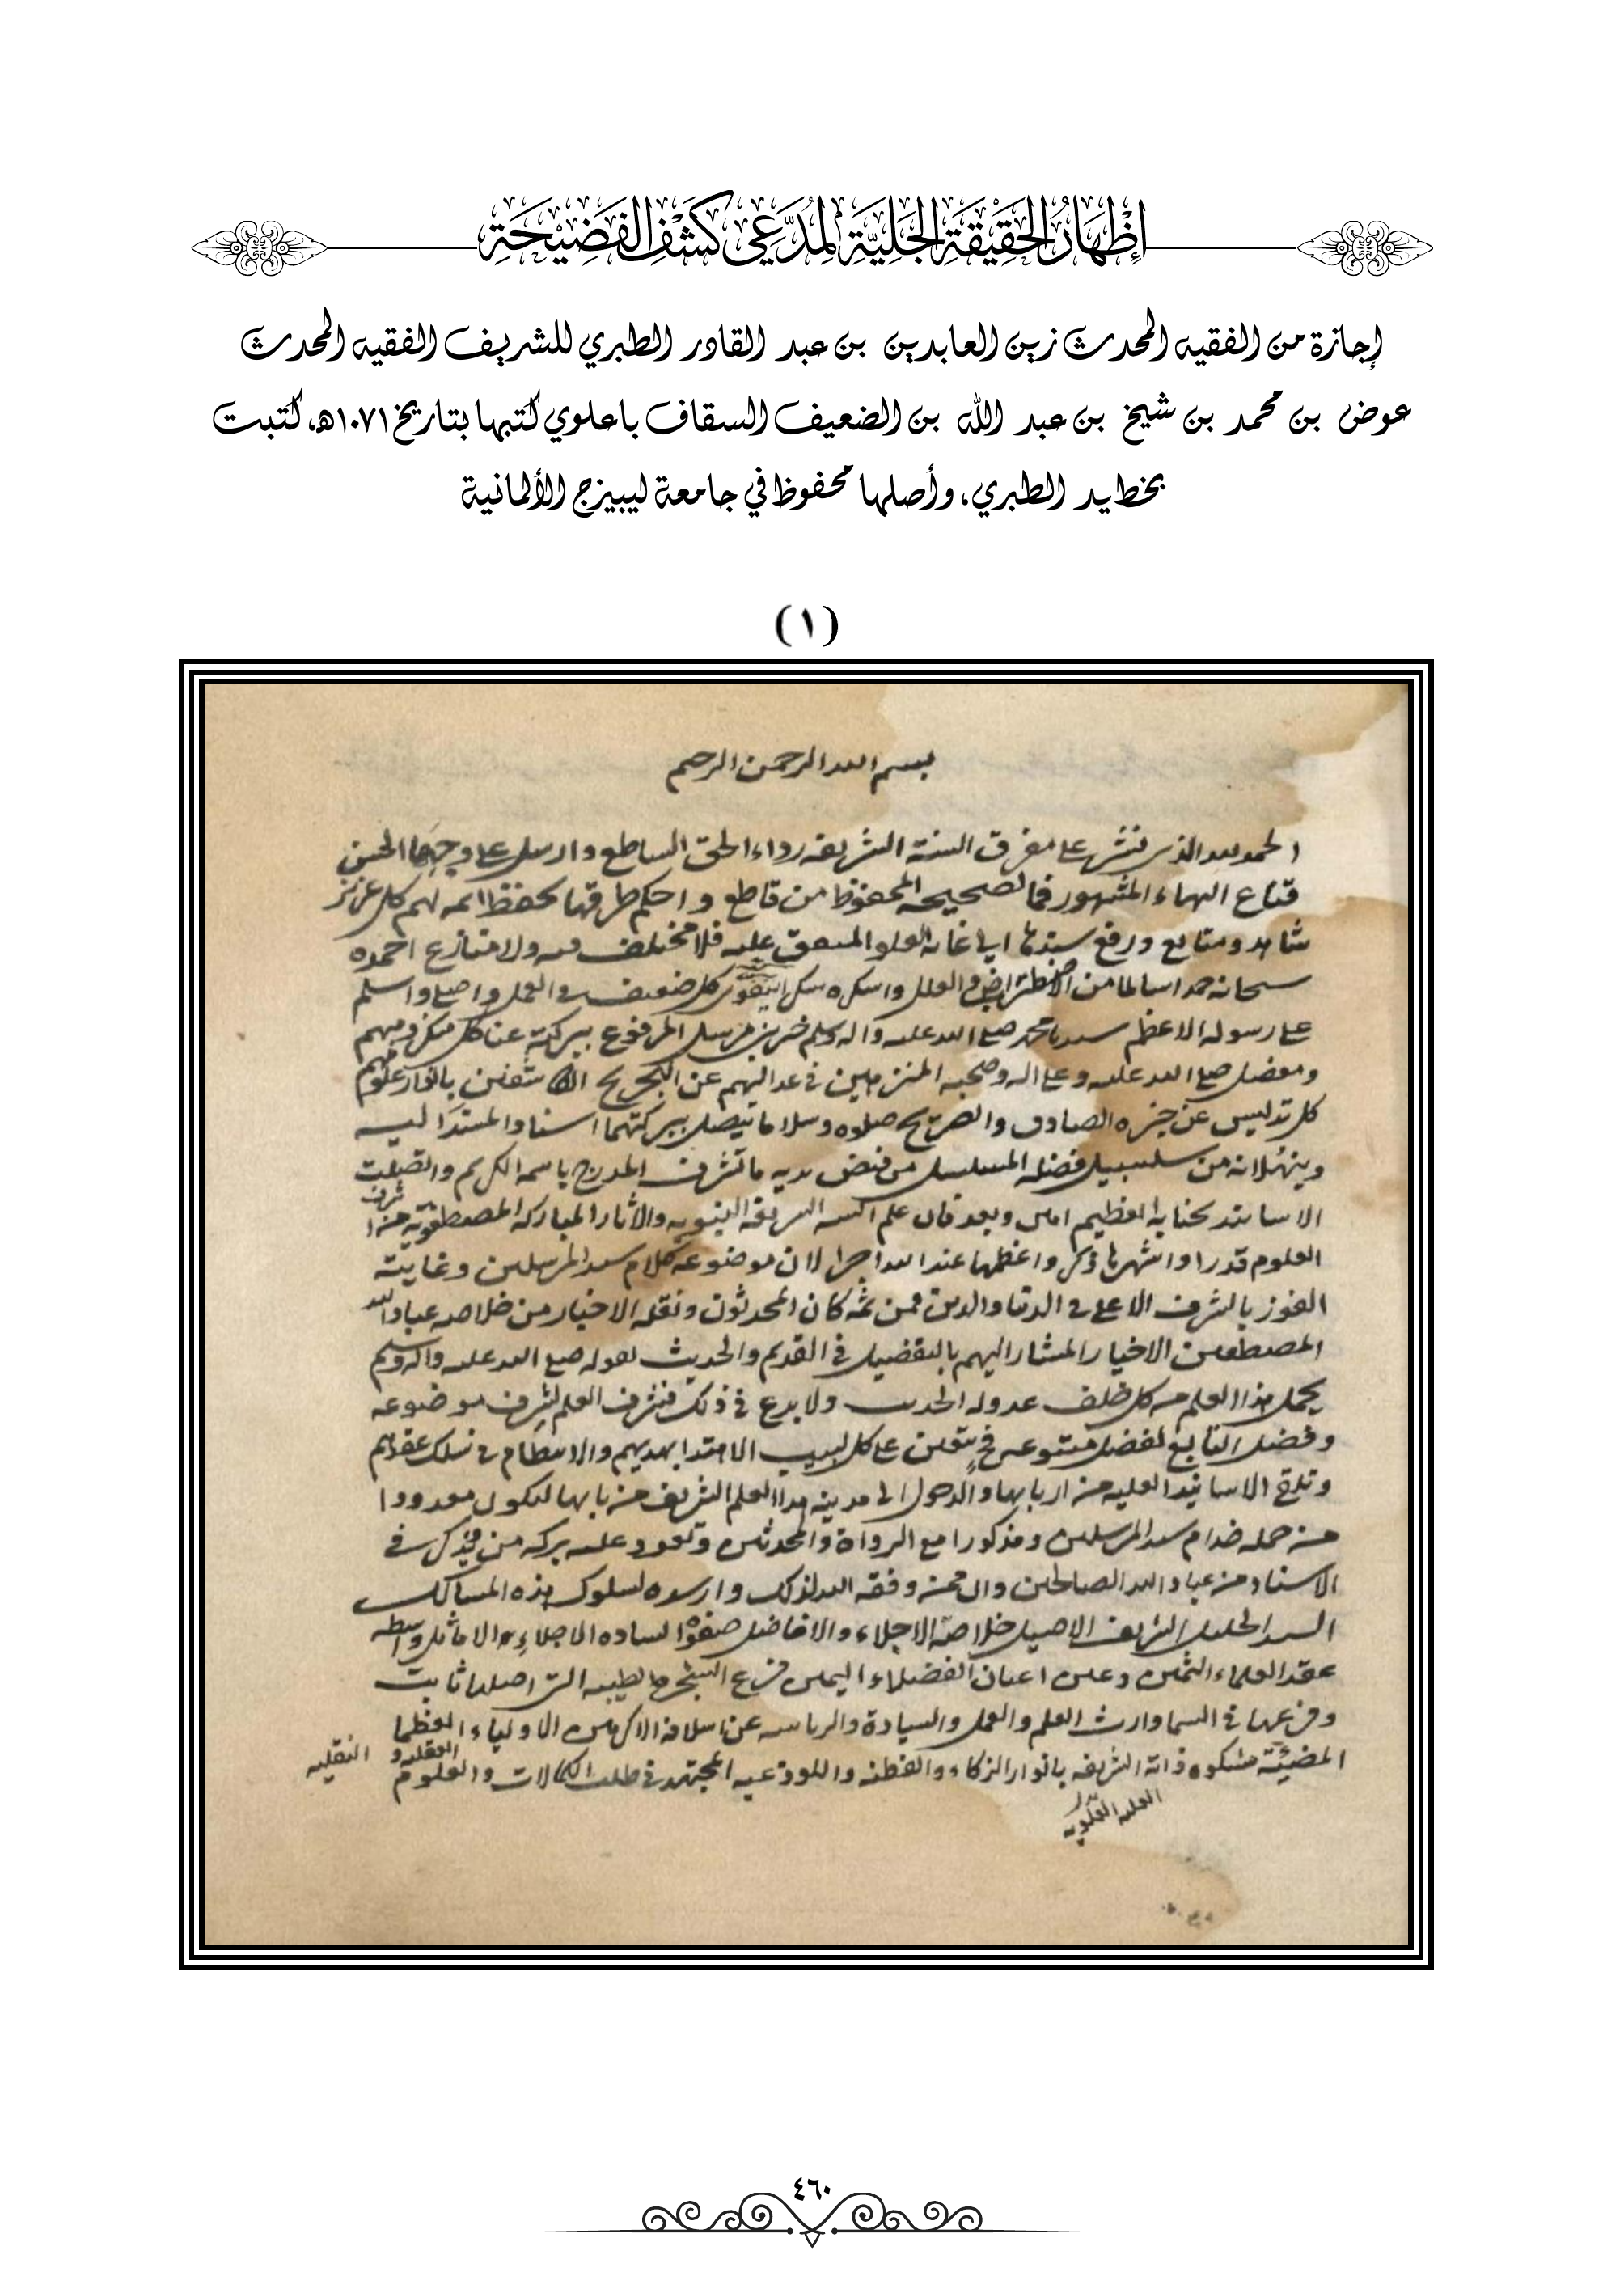 إِظْهَارُ الحَقِيْقَةِ الجَلِيَّةِ لِمُدَّعِي كَشْفِ الفَضِيْحَةِ
إجازة من الفقيه المحدث زين العابدين بن عبد القادر الطبري للشريف الفقيه المحدث
عوض بن محمد بن شيخ بن عبد الله بن الضعيف السقاف باعلوي كتبها بتاريخ ١٠٧١هـ، كتبت
بخط يد الطبري، وأصلها محفوظ في جامعة ليبيزج الألمانية
(١)
بسم الله الرحمن الرحيم
الحمد لله الذي نشر على مفرق السنة الشريفه رداء الحق الساطع وارسل على وجهها الحسن
قناع البهاء المشهور فما لصحيحه المحفوظ من قاطع واحكم طرقها بحفظ ائمه لهم كل عزيز
شاهد ومتابع ورفع سندها الى غايه العلو المتفق عليه فلا مختلف فيه ولا منازع احمده
سبحانه حمدا سالما من الاضطراب والعلل واشكره شكرا يتقوى كل ضعيف في العمل واصلي واسلم
على رسوله الاعظم سيدنا محمد صلى الله عليه واله وسلم خير من ارسل المرفوع ببركته عنا كل منكر ومبهم
ومعضل صلى الله عليه وعلى اله وصحبه المنزهين في عدالتهم عن التجريح بانوار علومهم
كل تدليس عن خبره الصادق والصريح صلوه وسلاما يتصل ببركتهما اسناد المستند اليه
وينهلانه من سلسبيل فضله المسلسل من فيض يديه ما تشرف المدرج باسمه الكريم واتصلت
الاسانيد بجنابه العظيم امين وبعد فان علم السنه الشريفة النبويه والاثار المباركه المصطفويه من اشرف
العلوم قدرا واشهرها ذكرا واعظمها عند الله اجرا لان موضوعه كلام سيد المرسلين وغايته
الفوز بالشرف الاعلى في الدنيا والدين فمن ثمه كان المحدثون ونقله الاخبار من خلاصه عباد الله
المصطفين الاخيار المشار اليهم بالتفضيل في القديم والحديث لقوله صلى الله عليه واله وسلم
يحمل هذا العلم من كل خلف عدوله الحديث ولا بدع في ذلك فشرف العلم لشرف موضوعه
وفضل التابع لفضل متبوعه فح يتعين على كل لبيب الاهتدا بهديهم والانتظام في سلك عقدهم
وتلقي الاسانيد العليه من اربابها والدخول الى مدينه هذا العلم الشريف من بابها ليكون معدودا
من جمله خدام سيد المرسلين ومذكورا مع الرواة والمحدثين وتعود عليه بركه من يذكر في
الاسناد من عباد الله الصالحين وان ممن وفقه الله لذلك وارشده لسلوك هذه المسالك
السيد الجليل الشريف الاصيل خلاصة الاجلاء والافاضل صفوة الساده الاجلاء والاماثل واسطه
عقد العلماء الثمين وعين اعيان الفضلاء اليمين فرع الشجره الطيبه التي اصلها ثابت
وفرعها في السما وارث العلم والعمل والسيادة والرياسه عن اسلافه الاكرمين الاولياء العظما
المضيئة مشكوه ذاته الشريفه بانوار الذكاء والفطنه واللوذعيه المجتهد في طلب الكمالات والعلوم العقليه و النقليه
العليه العلويه
٤٦٠